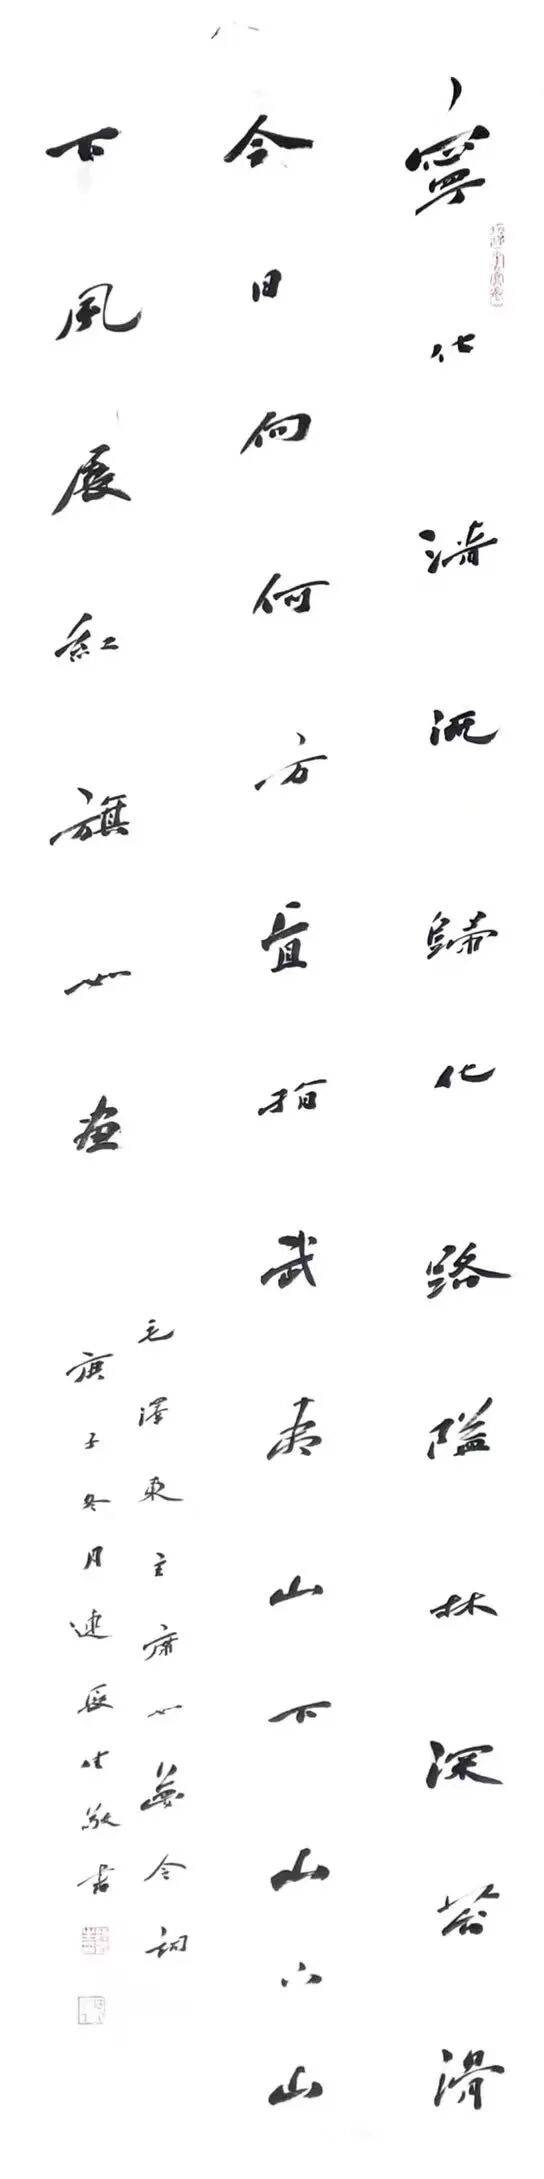 寧化清流歸化路隘林深苔滑
今日向何方直指武夷山下山下山
下風展紅旗如畫
毛澤東主席如夢令詞
庚子冬月連長敬書